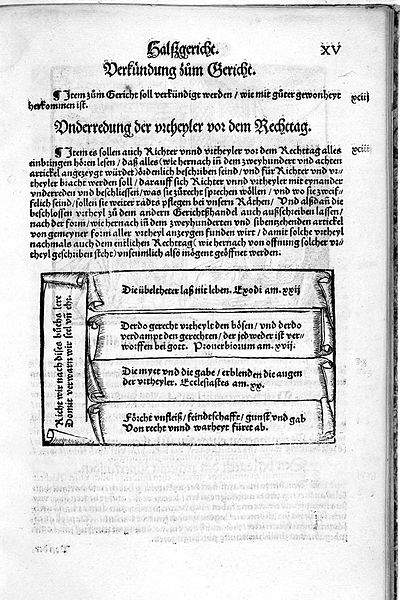 Halßgericht.
XV
Verkündung zům Gericht.
¶ Item zům Gericht soll verkündigt werden / wie mit gůter gewonheyt
herkommen ist.
xciij
Vnderredung der vrtheyler vor dem Rechttag.
¶ Item es sollen auch Richter vnnd vrtheyler vor dem Rechttag alles
einbringen hören lesen / daß alles (wie hernach in dem zweyhundert vnd achten
artickel angezeygt würdet) ördenlich beschriben seind / vnd für Richter vnd vr-
theyler bracht werden soll / darauff sich Richter vnnd vrtheyler mit eynander
vnderreden vnd beschliessen / was sie zůrecht sprechen wöllen / vnd wo sie zweif-
felich seind / sollen sie weiter radts pflegen bei vnsern Räthen / Vnd alßdañ die
beschlossen vrtheyl zů dem andern Gerichtßhandel auch außschreiben lassen /
nach der form / wie hernach in dem zweyhunderten vnd sibentzehenden artickel
von gemeyner form aller vrtheyl anzeygen funden wirt / damit solche vrtheyl
nachmals auch dem entlichen Rechttag (wie hernach von offnung solcher vr-
theyl geschriben steht) vnseumlich also mögent geöffnet werden.
xciiij
Richt wir nach dises bůchs lere
Domit verwarn wir seel vñ ehr.
Die übeltheter laß nit leben. Exodi am. xxij
Der do gerecht vrtheylet den bösen / vnd der do
verdampt den gerechten / der jedweder ist ver-
worffen bei gott. Prouerbiorum am. xvij.
Die myet vnd die gabe / erblenden die augen
der vrtheyler. Ecclesiastes am. xx.
Förcht vnfleiß / feindtschafft / gunst vnd gab
Von recht vnnd warheyt füret ab.